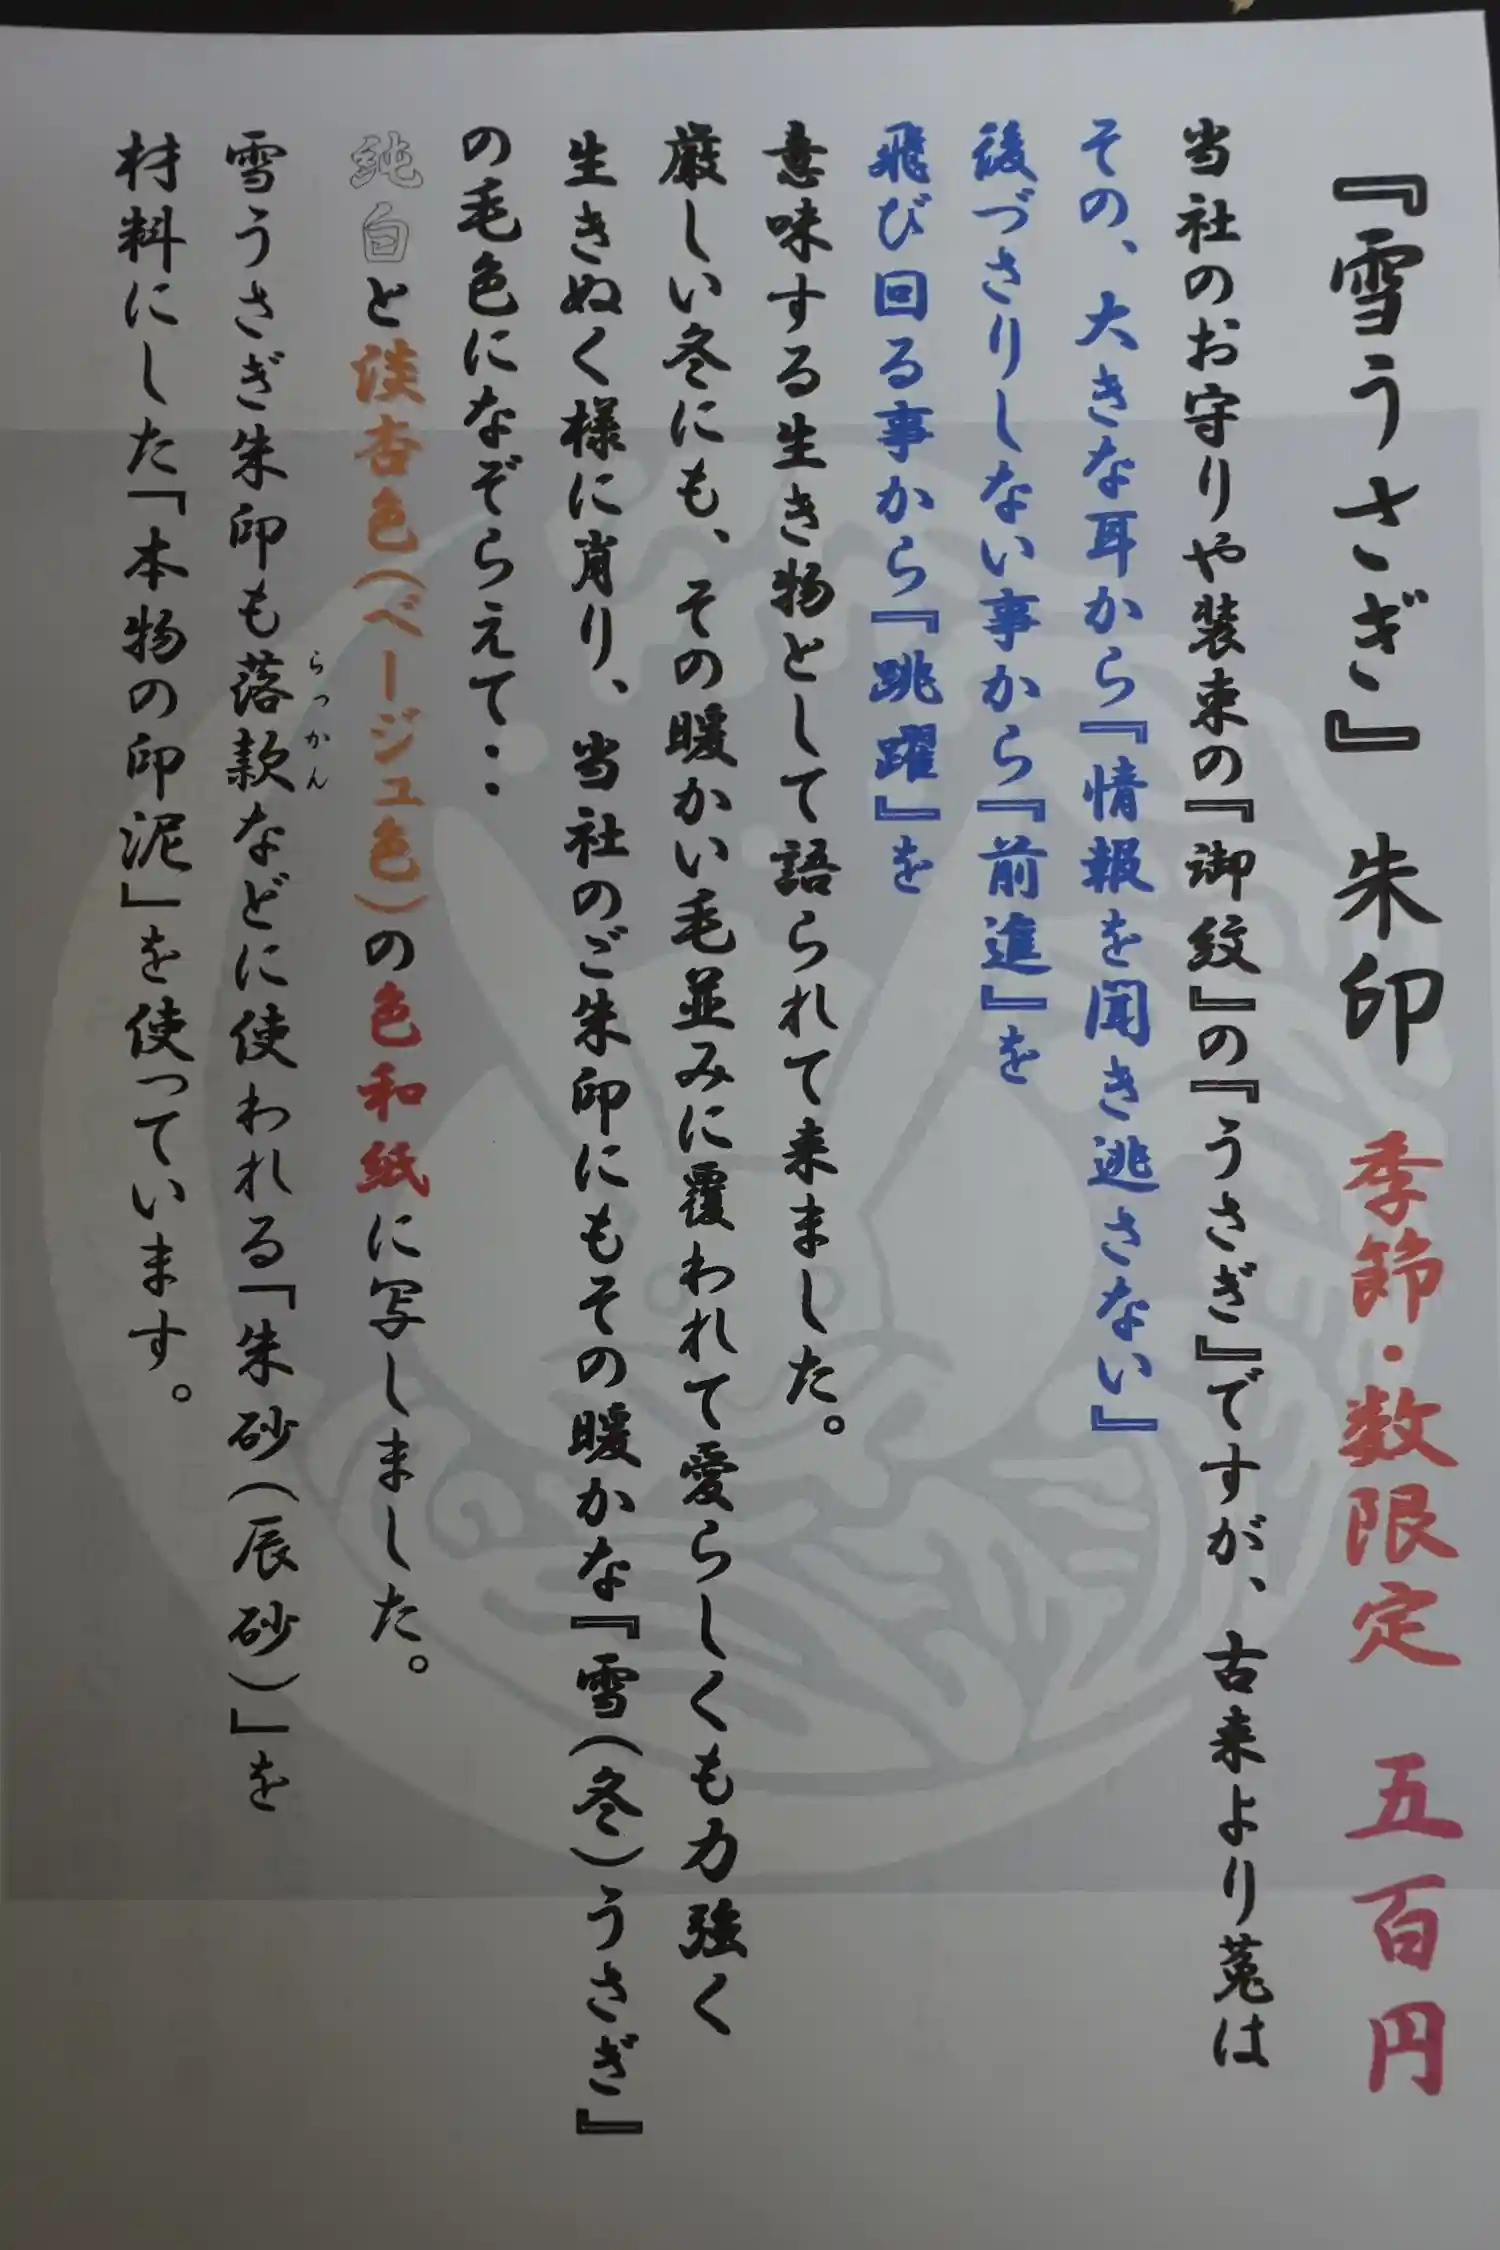 『雪うさぎ』朱印 季節・数限定 五百円
当社のお守りや装束の『御紋』の『うさぎ』ですが、古来より菟は
その、大きな耳から『情報を聞き逃さない』
後づさりしない事から『前進』を
飛び回る事から『跳躍』を
意味する生き物として語られて来ました。
厳しい冬にも、その暖かい毛並みに覆われて愛らしくも力強く
生きぬく様に肖り、当社のご朱印にもその暖かな『雪(冬)うさぎ』
の毛色になぞらえて・・
純白と淡杏色(ベージュ色)の色和紙に写しました。
雪うさぎ朱印も落款などに使われる「朱砂(辰砂)」を
らっかん
材料にした「本物の印泥」を使っています。